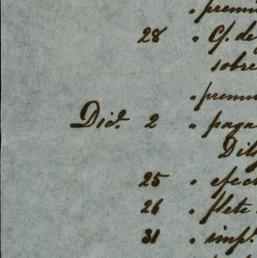 " premi
28 " C/. de
sobre
" premi
Dic.e 2 " paga
Dilig
25 " efec
26 " flete
31 " impl.